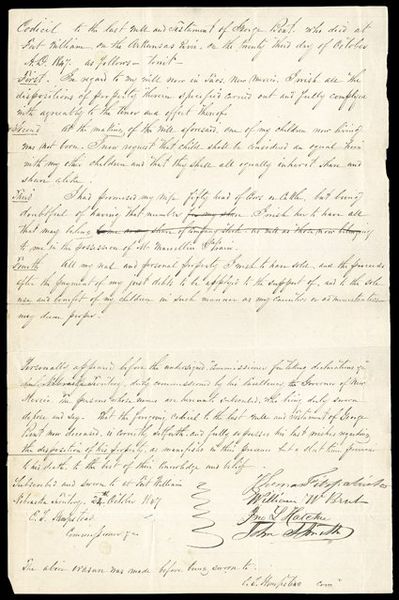 Codicil to the last will and testament of George Bent. who died at
Fort William, on the Arkansas River, on the twenty third day of October
A.D. 1847. as follows - towit -
First. In regard to my will now in Taos, New Mexico. I wish all the
dispositions of property therein specified carried out and fully complied
with agreeably to the tenor and effect thereof.
Second At the making of the will aforesaid, one of my children now living
was not born. I now request that child shall be considered an equal heir
with my other children and that they shall all equally inherit share and
share alike.
Third I had promised my wife fifty head of Cows or Cattle, but being
doubtful of having that number I wish her to have all
that may belong
to me in the possession of Mr Marcellin
Fourth All my real and personal property I wish to have sold, and the proceeds
after the payment of my just debts to be applied to the support of, and to the sole
use and benefit of my children in such manner as my executors or administrators
may deem proper.
Personally appeared before the undersigned Commissioner for taking declarations &c
Nebraska Territory, duly commissioned by his Excellency the Governor of New
Mexico. The persons whose names are hereunto subscribed, who being duly sworn
depose and say. That the foregoing codicil to the last will and testament of George
Bent now deceased, is correctly set forth, and fully expresses his last wishes regarding
the disposition of his property, as manifested in their presence but a short time previous
to his death, to the best of their knowledge and belief.
Subscribed and sworn to at Fort William
Nebraska Territory 24th October 1847
C. L. Hempstead
Commissioner &c
Thomas Fitzpatrick
William W Bent
Jno L Hatcher
John S Smith
The above erasure was made before being sworn to.
C. L. Hempstead Comr